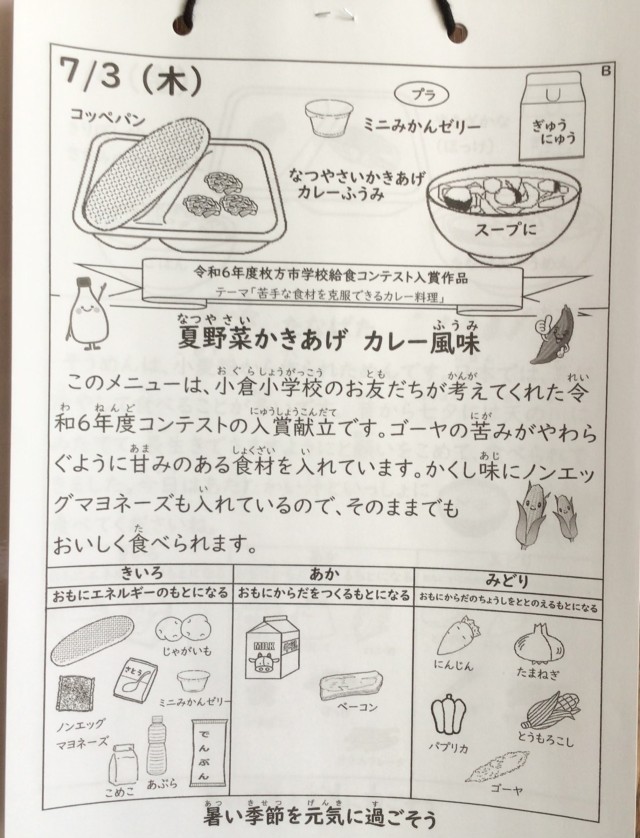 B
7/3（木）
コッペパン
プラ
ミニみかんゼリー
ぎゅう
にゅう
なつやさいかきあげ
カレーふうみ
スープに
令和6年度枚方市学校給食コンテスト入賞作品
テーマ「苦手な食材を克服できるカレー料理」
なつやさい ふうみ
夏野菜かきあげ カレー風味
おぐらしょうがっこう とも かんが れい
このメニューは、小倉小学校のお友だちが考えてくれた令
わ ねんど にゅうしょうこんだて にが
和6年度コンテストの入賞献立です。ゴーヤの苦みがやわら
あま しょくざい い あじ
ぐように甘みのある食材を入れています。かくし味にノンエッ
い
グマヨネーズも入れているので、そのままでも
た
おいしく食べられます。
きいろ
おもにエネルギーのもとになる
じゃがいも
さとう
ミニみかんゼリー
ノンエッグ
マヨネーズ
こめこ
あぶら
でんぷん
あか
おもにからだをつくるもとになる
MILK
ベーコン
みどり
おもにからだのちょうしをととのえるもとになる
にんじん
たまねぎ
パプリカ
とうもろこし
ゴーヤ
あつ きせつ げんき す
暑い季節を元気に過ごそう